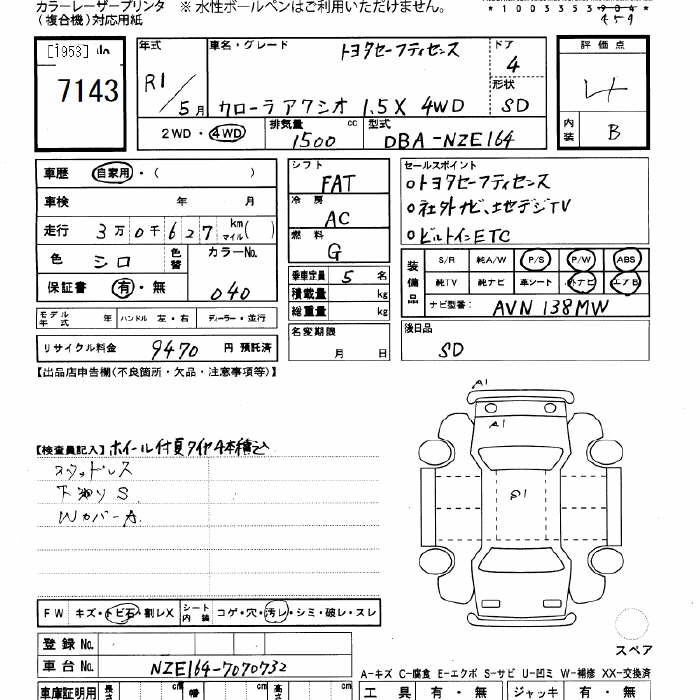 カラーレーザープリンタ ※ 水性ボールペンはご利用いただけません。
(複合機)対応用紙
*100353*904*
459
[1953]
7143
年式 車名・グレード トヨタセーフティセンス ドア 4
R1/5月 カローラアクシオ 1.5X 4WD 形状 SD
2WD・4WD 排気量 1500 cc 型式 DBA-NZE164
評価点
内装 B
車歴 自家用・( )
車検 年 月
走行 3万0千627 km マイル( )
色 シロ 色替 カラーNo. 040
保証書 有・無
モデル年式 年 ハンドル 左・右 ディーラー・並行
リサイクル料金 9470 円 預託済
シフト FAT
冷房 AC
燃料 G
乗車定員 5 名
積載量 kg
総重量 kg
名変期限 月 日
セールスポイント
○トヨタセーフティセンス
○社外ナビ、地デジTV
○ビルトインETC
装備品 S/R 純A/W P/S P/W ABS
純TV 純ナビ 革シート 外ナビ エアB
ナビ型番: AVN138MW
後日品
SD
【出品店申告欄(不良箇所・欠品・注意事項等)】
【検査員記入】ホイール付夏タイヤ4本積込
スタッドレス
下廻りS
WカバーA
A1
A1
G1
FW キズ・トビ石・割レX シート内装 コゲ・穴・汚レ・シミ・破レ・スレ
登録No.
車台No. NZE164-7070732
スペア
A-キズ C-腐食 E-エクボ S-サビ U-凹ミ W-補修 XX-交換済
車庫証明用 長さ cm 幅 cm 高さ cm 工具 有・無 ジャッキ 有・無